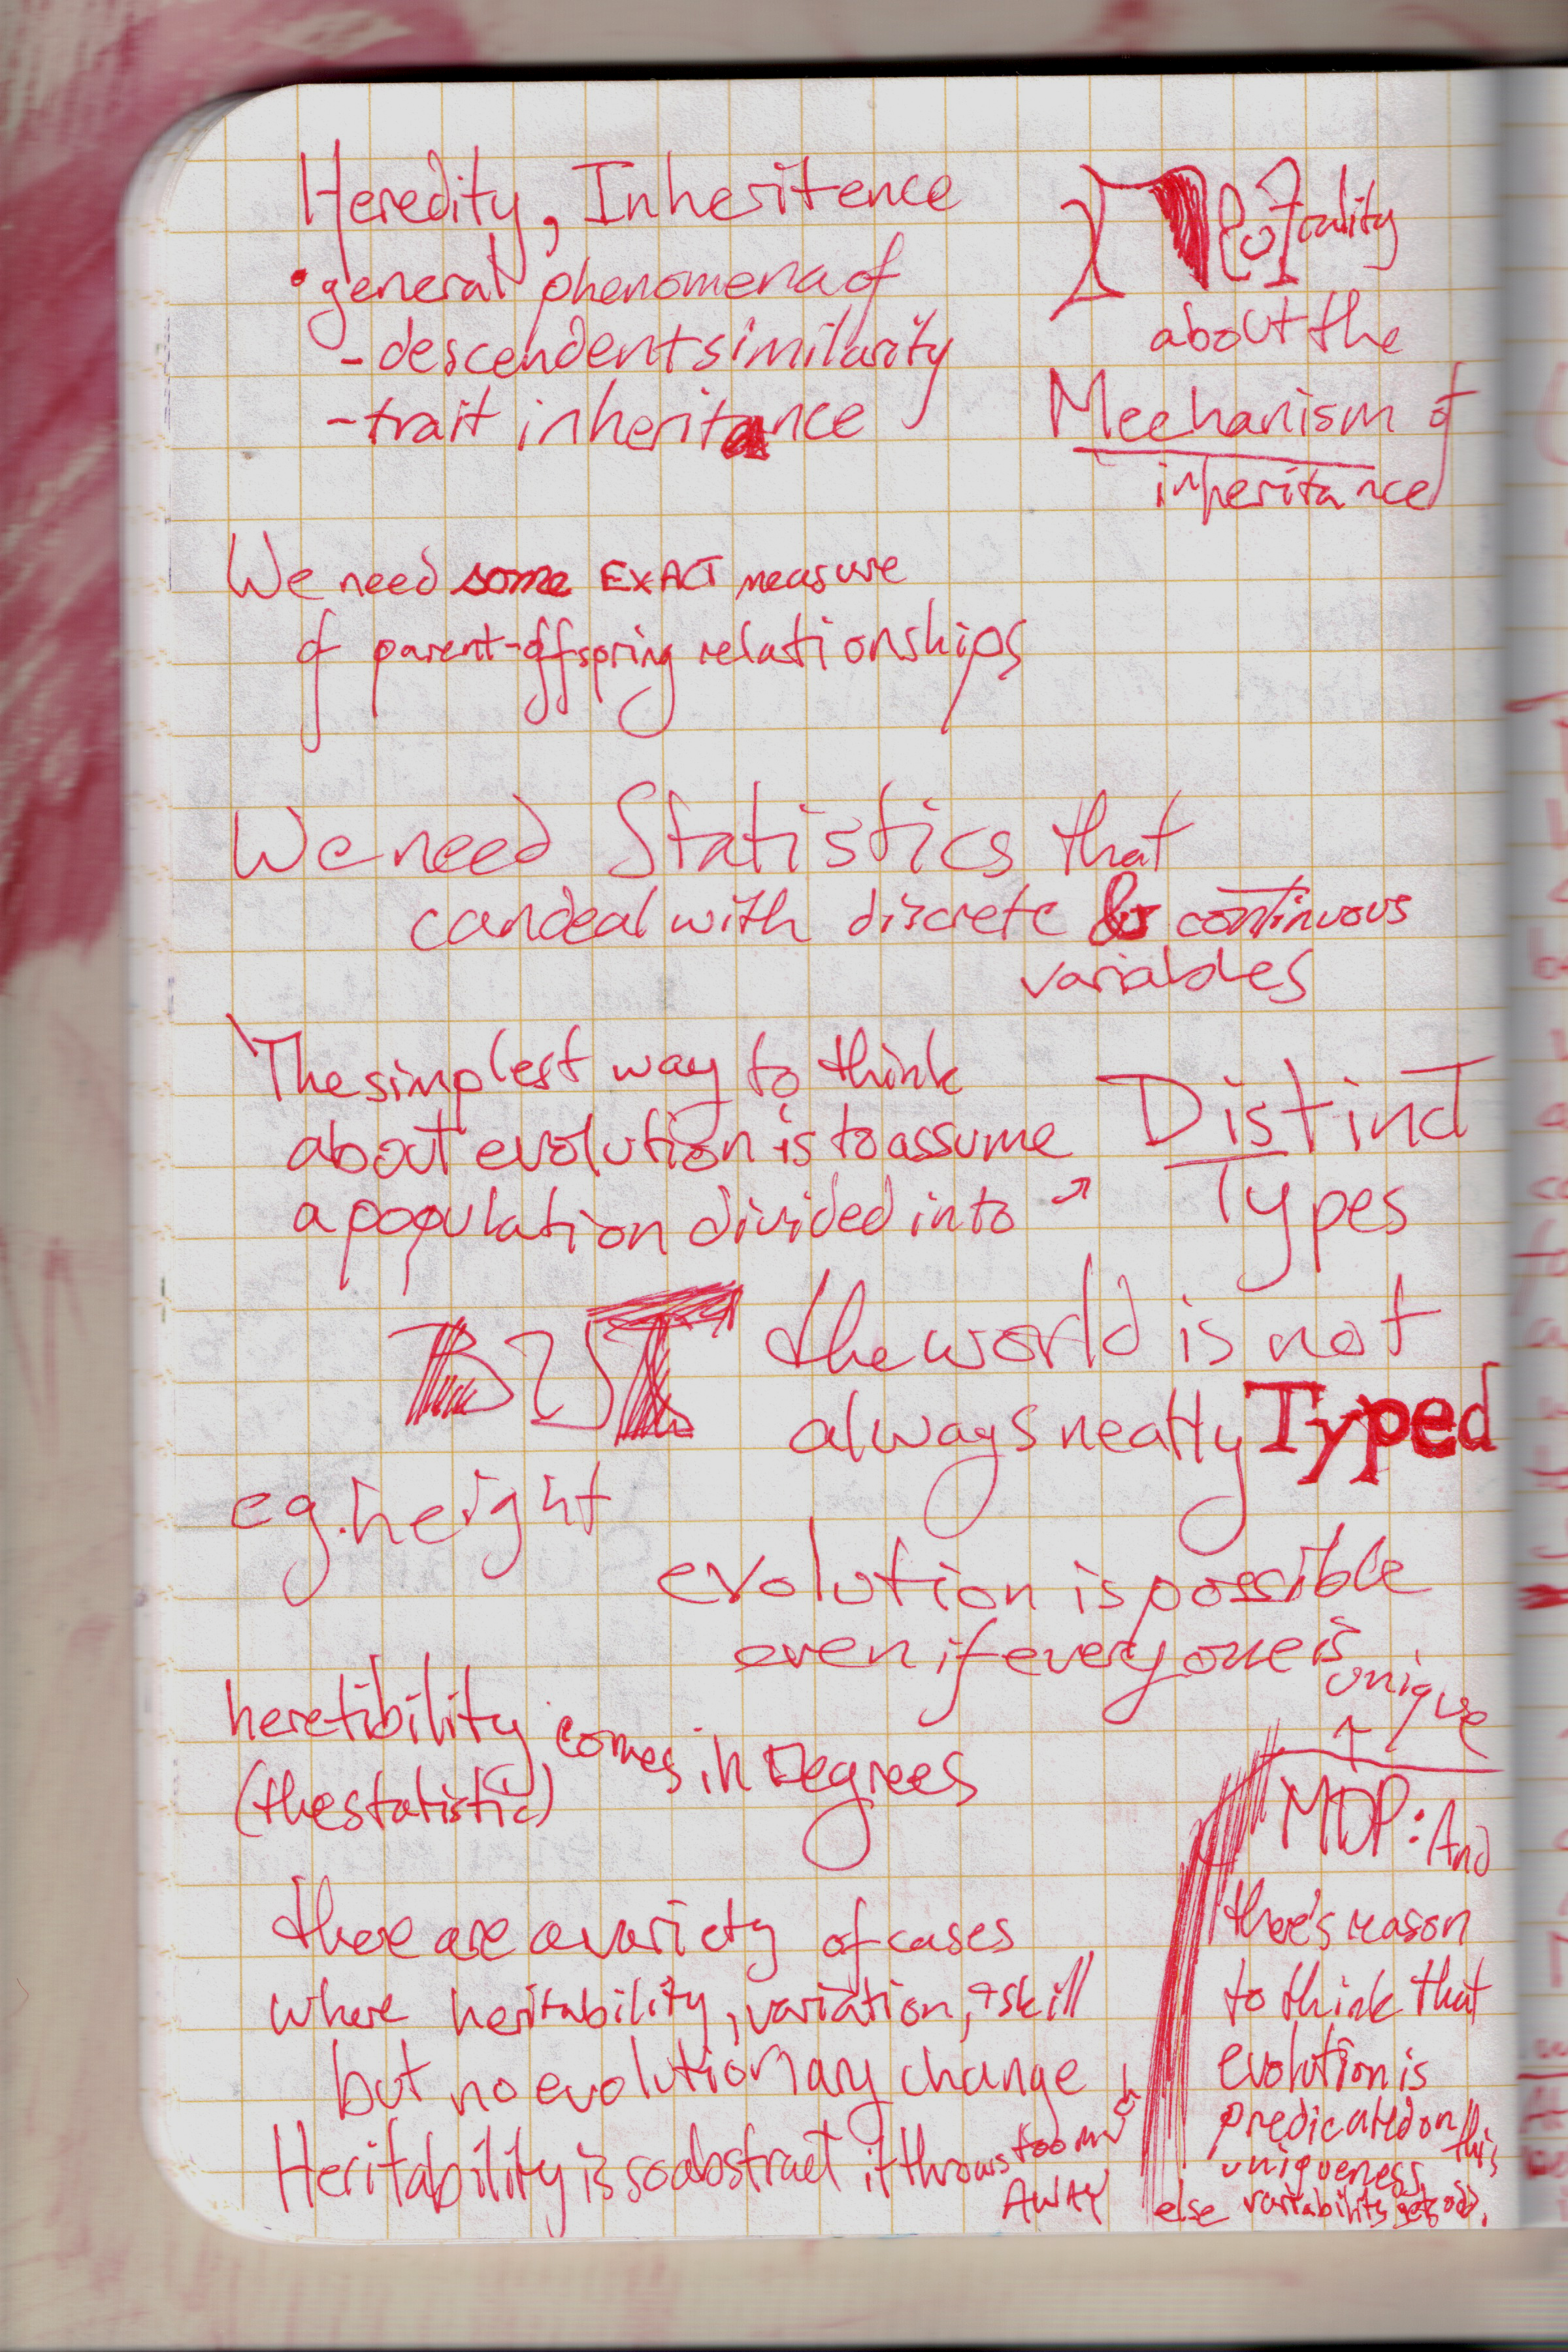 Heredity, Inheritence
• general phenomena of
- descendent similarity
- trait inheritance
Neutrality
about the
Mechanism of
inheritance
We need some EXACT measure
of parent-offspring relationships
We need Statistics that
can deal with discrete & continuous
variables
The simplest way to think
about evolution is to assume
a population divided into ↗
Distinct
Types
BUT the world is not
always neatly Typed
eg. height
evolution is possible
even if everyone is
unique
heretibility comes in Degrees
(the statistic)
there are a variety of cases
where heritability, variation, + skill
but no evolutionary change
Heritability is so abstract it throws too much
AWAY
MDP: And
there's reason
to think that
evolution is
predicated on this
uniqueness
else variability gets odd.